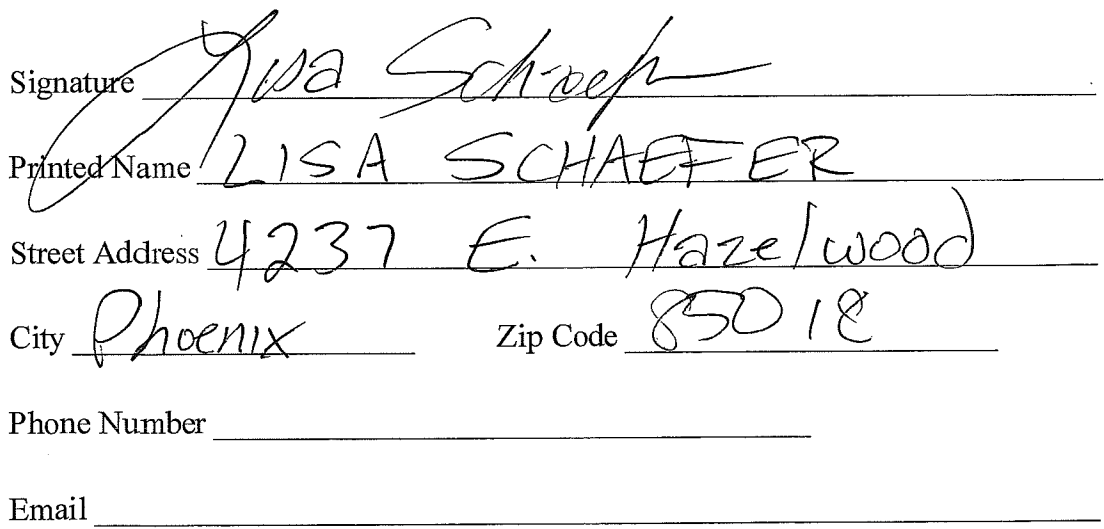 Signature Lisa Schaefer
Printed Name LISA SCHAEFER
Street Address 4237 E. Hazelwood
City Phoenix Zip Code 85018
Phone Number
Email